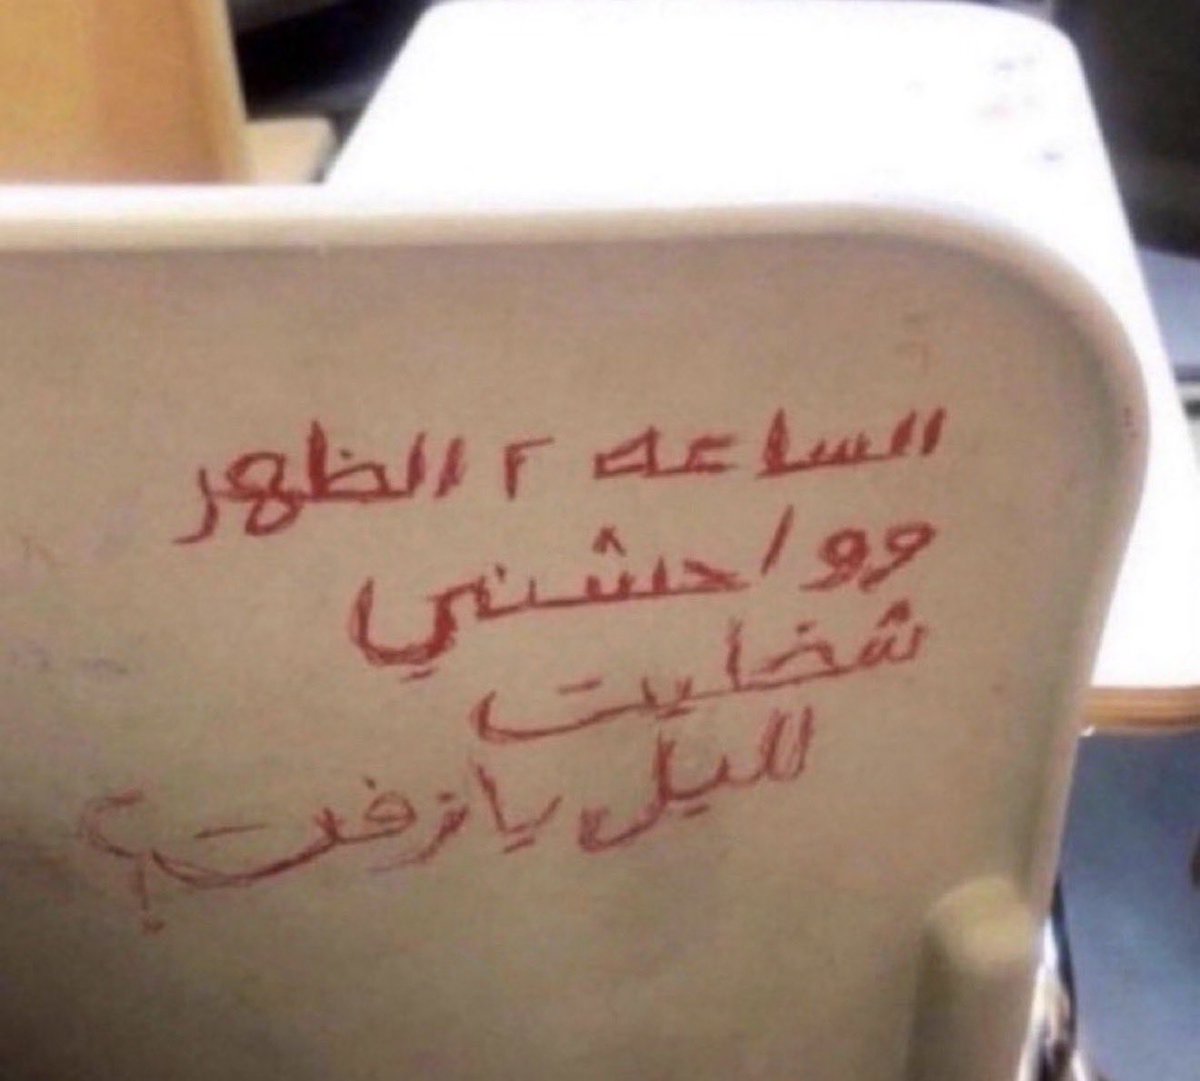 الساعه ٢ الظهر
وواحشني
شخليت
لليل يازفت؟